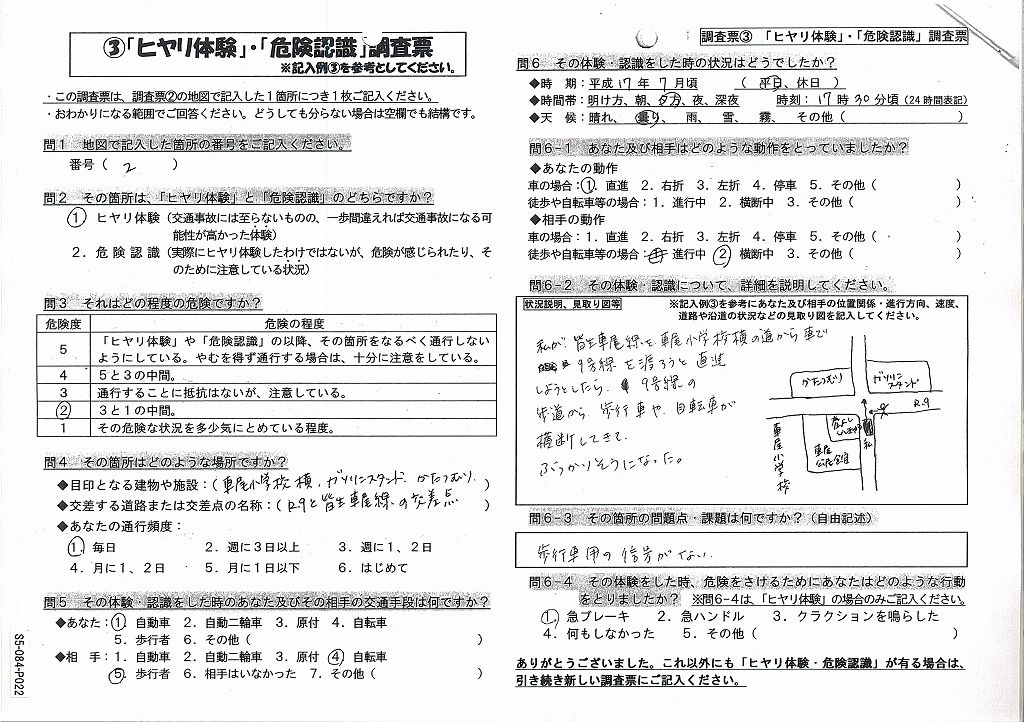 ③「ヒヤリ体験」・「危険認識」調査票
※記入例③を参考としてください。
・この調査票は、調査票②の地図で記入した１箇所につき１枚ご記入ください。
・おわかりになる範囲でご回答ください。どうしても分らない場合は空欄でも結構です。
問１ 地図で記入した箇所の番号をご記入ください。
番号（ 2 ）
問２ その箇所は、「ヒヤリ体験」と「危険認識」のどちらですか？
① ヒヤリ体験（交通事故には至らないものの、一歩間違えれば交通事故になる可
能性が高かった体験）
２．危険認識（実際にヒヤリ体験したわけではないが、危険が感じられたり、そ
のために注意している状況）
問３ それはどの程度の危険ですか？
危険度 危険の程度
５ 「ヒヤリ体験」や「危険認識」の以降、その箇所をなるべく通行しない
ようにしている。やむを得ず通行する場合は、十分に注意をしている。
４ ５と３の中間。
３ 通行することに抵抗はないが、注意している。
② ３と１の中間。
１ その危険な状況を多少気にとめている程度。
問４ その箇所はどのような場所ですか？
◆目印となる建物や施設：（車尾小学校横，ガソリンスタンド，かたつむり． ）
◆交差する道路または交差点の名称：（R9と皆生車尾線の交差点 ）
◆あなたの通行頻度：
①．毎日 ２．週に３日以上 ３．週に１、２日
４．月に１、２日 ５．月に１日以下 ６．はじめて
問５ その体験・認識をした時のあなた及びその相手の交通手段は何ですか？
◆あなた：① 自動車 ２．自動二輪車 ３．原付 ４．自転車
５．歩行者 ６．その他（ ）
◆相 手：１．自動車 ２．自動二輪車 ３．原付 ④ 自転車
⑤．歩行者 ６．相手はいなかった ７．その他（ ）
S5-084-P022
調査票③ 「ヒヤリ体験」・「危険認識」調査票
問６ その体験・認識をした時の状況はどうでしたか？
◆時 期：平成 17 年 7 月頃 （ 平日、休日 ）
◆時間帯：明け方、朝、夕方、夜、深夜 時刻：17時 30分頃（24時間表記）
◆天 候：晴れ、曇り、 雨、 雪、 霧、 その他（ ）
問６-１ あなた及び相手はどのような動作をとっていましたか？
◆あなたの動作
車の場合：①．直進 ２．右折 ３．左折 ４．停車 ５．その他（ ）
徒歩や自転車等の場合：１．進行中 ２．横断中 ３．その他（ ）
◆相手の動作
車の場合：１．直進 ２．右折 ３．左折 ４．停車 ５．その他（ ）
徒歩や自転車等の場合：１．進行中 ② 横断中 ３．その他（ ）
問６-２ その体験・認識について、詳細を説明してください。
状況説明、見取り図等 ※記入例③を参考にあなた及び相手の位置関係・進行方向、速度、
道路や沿道の状況などの見取り図を記入してください。
私が，皆生車尾線を車尾小学校横の道から車で
9号線を渡ろうと直進
しようとしたら，9号線の
歩道から，歩行車や，自転車が
横断してきて．
ぶつかりそうになった。
かたつむり
ガソリンスタンド
R.9
車尾公民館
私
車尾小学校
問６-３ その箇所の問題点・課題は何ですか？（自由記述）
歩行車用の信号がない．
問６-４ その体験をした時、危険をさけるためにあなたはどのような行動
をとりましたか？ ※問6-4は、「ヒヤリ体験」の場合のみご記入ください。
①．急ブレーキ ２．急ハンドル ３．クラクションを鳴らした
４．何もしなかった ５．その他（ ）
ありがとうございました。これ以外にも「ヒヤリ体験・危険認識」が有る場合は、
引き続き新しい調査票にご記入ください。